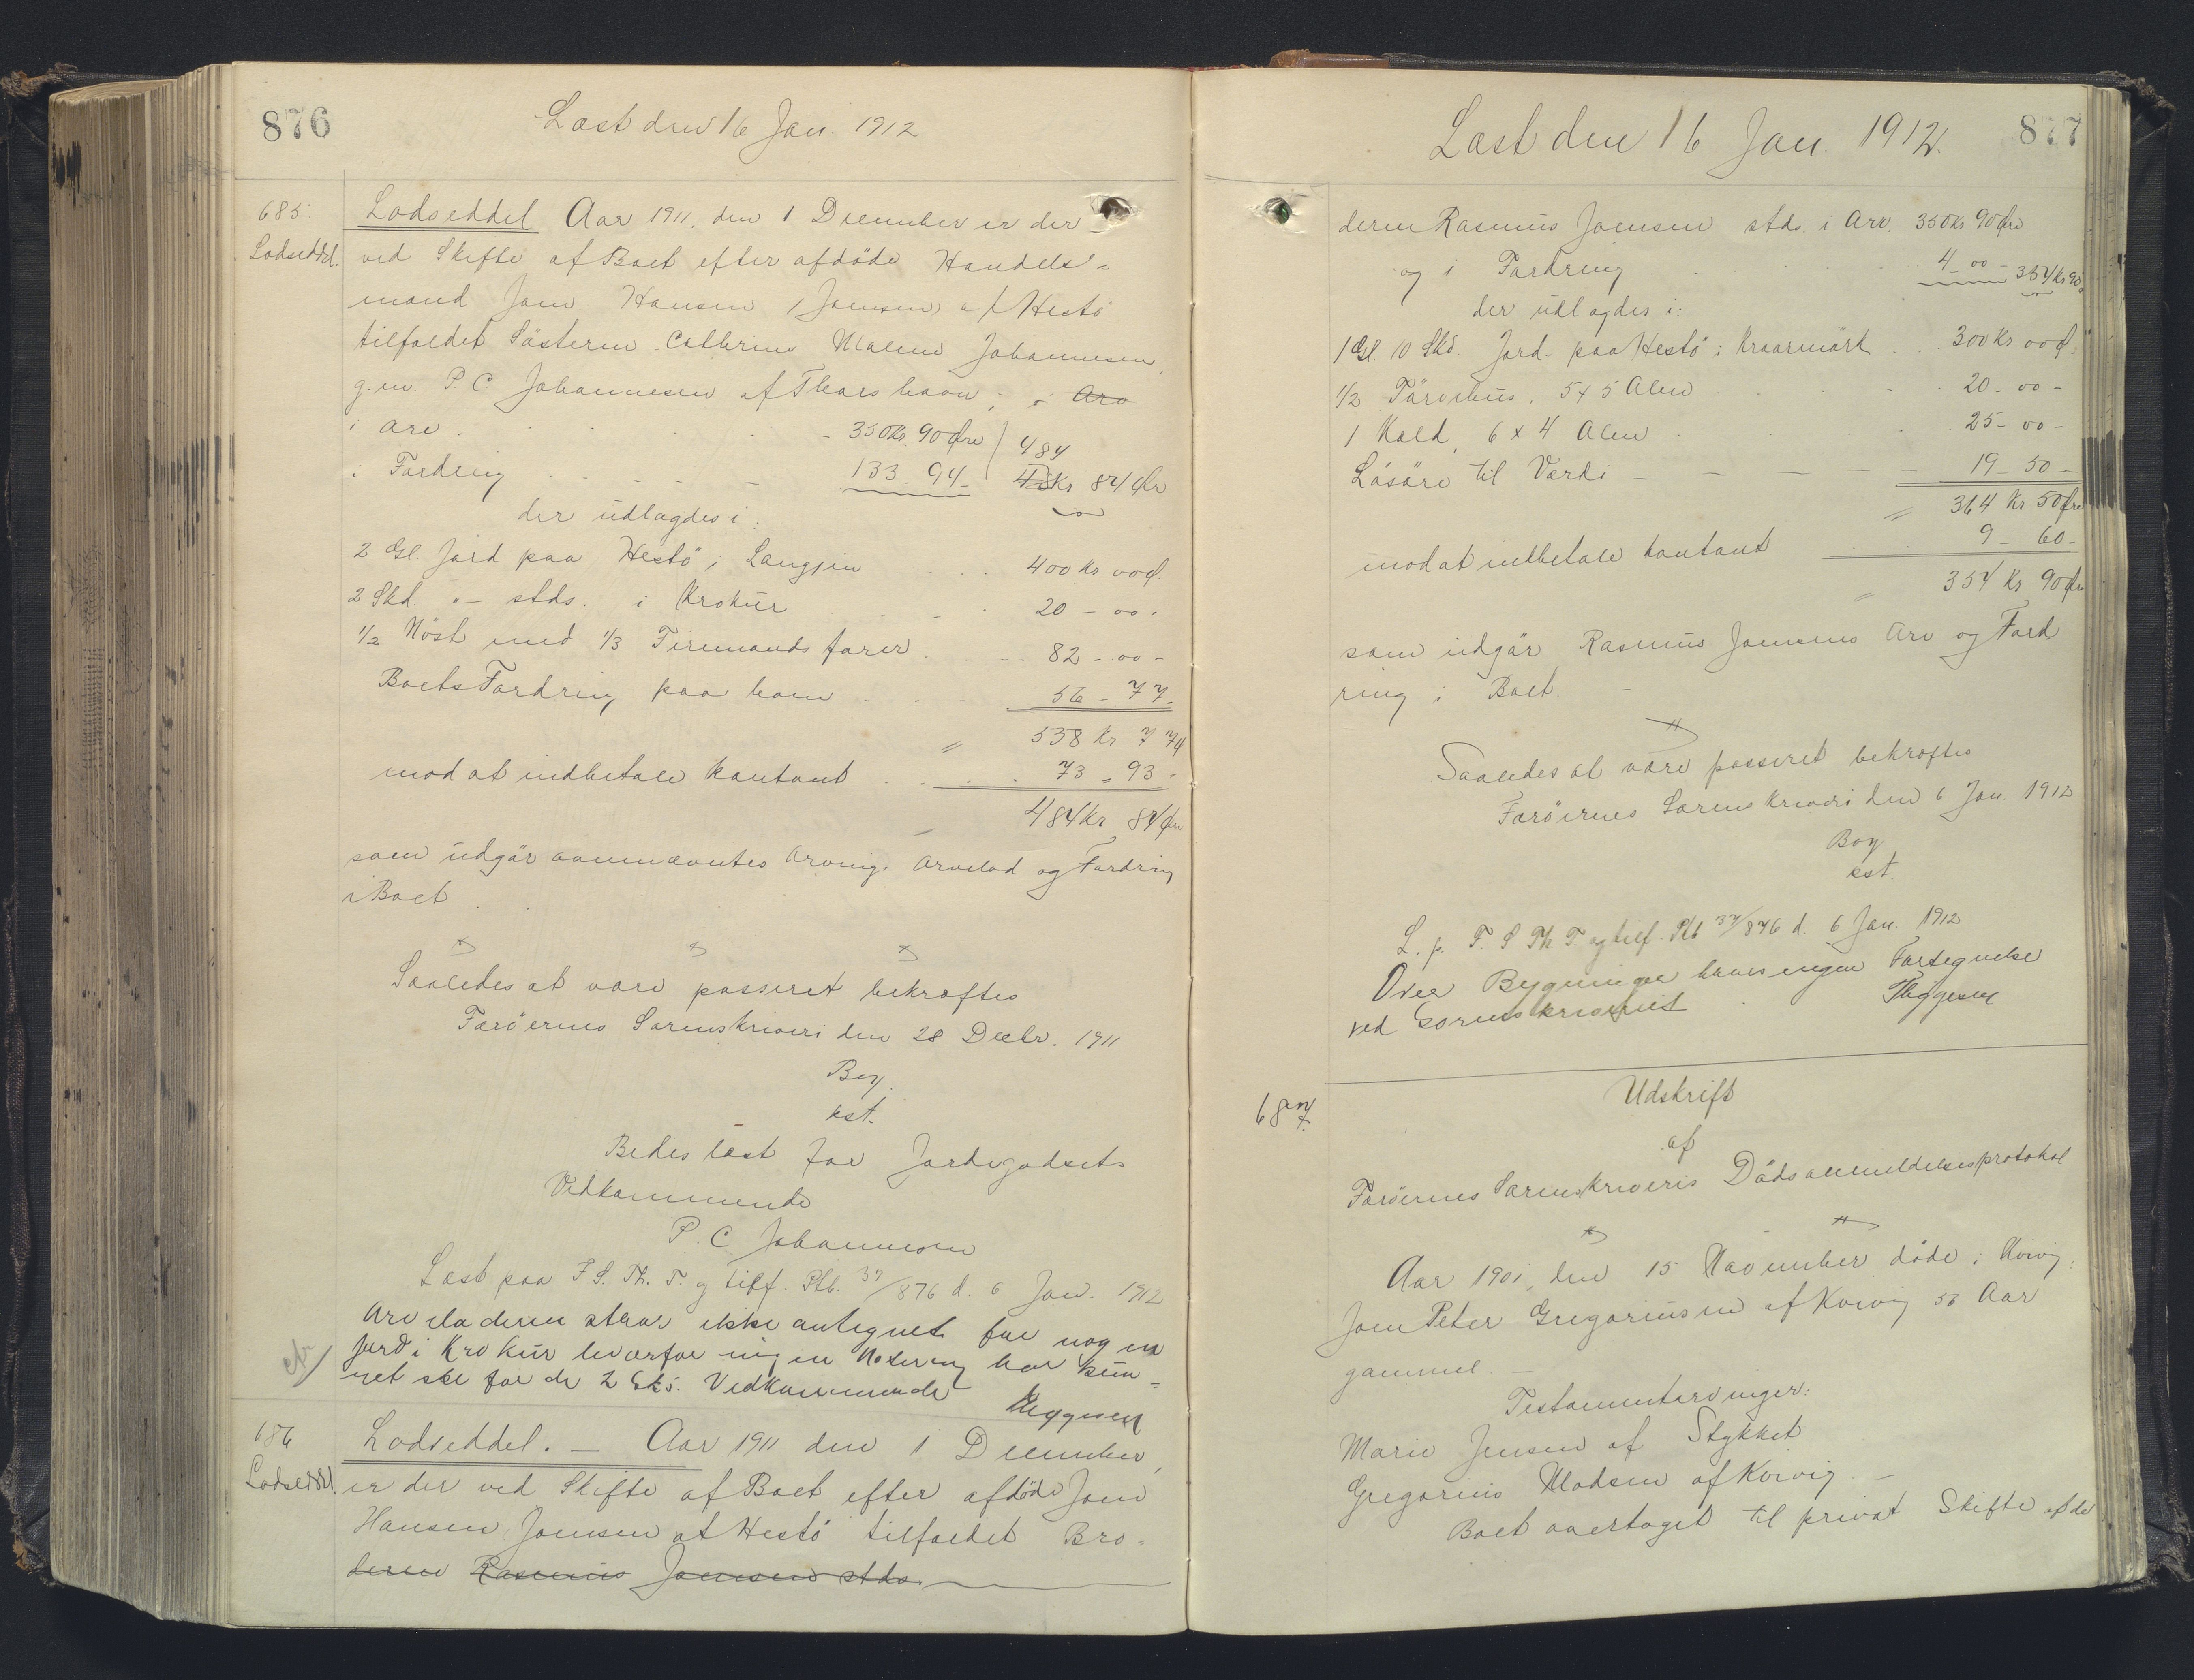 876
Læst den 16 Jan. 1912
685.
Lodseddel.
Lodseddel Aar 1911, den 1 December er der
ved Skifte af Boet efter afdöde Handels=
mand Joen Hansen Joensen af Hestö
tilfaldet Sösteren Cathrine Malene Johannesen,
g. m. P. C. Johannesen af Thorshavn, i Arv
i Arv . . . 350 Kr. 90 Øre
484
i Fordring . . . 133 - 94 - Kr 84 Øre
der udlagdes i:
2 Gl. Jord paa Hestö i Langjen . . . 400 Kr 00 Ø.
2 Skd. - stds. i Krokur . . . 20 - 00 -
1/2 Nöst med 1/3 Firemandsfarer . . . 82 - 00 -
Boets Fordring paa ham . . . 56 - 77 -
= 558 Kr 77
mod at indbetale kontant . . . 73 - 93 -
484 Kr 84 Øre
som udgör ovennævntes Arvings Arvelod og Fordring
i Boet.
Saaledes at være passeret bekræftes
Færöernes Sorenskriveri den 28 Decbr. 1911
Boy
kst.
Bedes læst for Jordegodsets
Vedkommende
P. C. Johannesen
Læst paa F. S. Th. T. og tilf. Ptb. 37/876 d. 6 Jan. 1912
Arveladeren staar ikke antegnet for nogen
Jord i Krokur hvorfor ingen Notering har kun=
net ske for de 2 Sk. Vedkommende
686
Lodseddel.
Lodseddel. — Aar 1911 den 1 December,
er der ved Skifte af Boet efter afdöde Joen
Hansen Joensen af Hestö tilfaldet Bro=
deren Rasmus Joensen stds.
Læst den 16 Jan. 1912.
877
deren Rasmus Joensen stds. i Arv. 350 Kr 90 Øre
og i Fordring . . . 4 - 00 - 354 Kr 90
der udlagdes i:
1 Gl. 10 Skd. Jord paa Hestö i Kraarmörk . . . 300 Kr 00 Ø.
1/2 Törvehus, 5 x 5 Alen . . . 20 - 00 -
1 Kold, 6 x 4 Alen . . . 25 - 00 -
Lösöre til Værdi — — — 19 - 50 -
= 364 Kr 50 Øre
mod at indbetale kontant . . . 9 - 60 -
= 354 Kr 90 Øre
som udgör Rasmus Joensens Arv og Ford
ring i Boet. —
Saaledes at være passeret bekræftes
Færöernes Sorenskriveri den 6 Jan. 1912
Boy
kst.
L. p. F. S. Th. T. og tilf. Ptb 37/876 d. 6 Jan. 1912
Over Bygninger haves ingen Fortegnelse
ved Sorenskriveriet
687.
Udskrift
af
Færöernes Sorenskriveris Dödsanmeldelsesprotokol
Aar 1901, den 15 November döde i Kvivig,
Joen Peter Gregoriussen af Kvivig 56 Aar
gammel —
Testamentarvinger:
Marie Jensen af Stykket
Gregorius Madsen af Kvivig —
Boet overtaget til privat Skifte af de